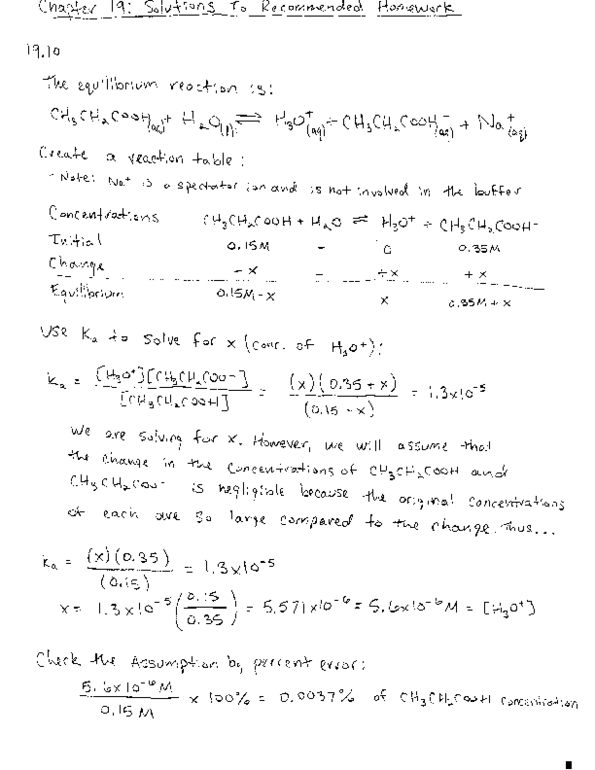 Chapter 19: Solutions To Recommended Homework
19.10
The equilibrium reaction is:
CH₃CH₂COOH(aq) + H₂O(l) ⇌ H₃O⁺(aq) + CH₃CH₂COOH⁻(aq) + Na⁺(aq)
Create a reaction table:
- Note: Na⁺ is a spectator ion and is not involved in the buffer
Concentrations CH₃CH₂COOH + H₂O ⇌ H₃O⁺ + CH₃CH₂COOH-
Initial 0.15M - 0 0.35M
Change - x - + x + x
Equilibrium 0.15M - x x 0.35M + x
Use Ka to solve for x (conc. of H₃O⁺):
Ka = [H₃O⁺][CH₃CH₂COO⁻] / [CH₃CH₂COOH] = (x)(0.35 + x) / (0.15 - x) = 1.3x10⁻⁵
We are solving for x. However, we will assume that
the change in the concentrations of CH₃CH₂COOH and
CH₃CH₂COO⁻ is negligible because the original concentrations
of each are so large compared to the change. Thus...
Ka = (x)(0.35) / (0.15) = 1.3x10⁻⁵
x = 1.3x10⁻⁵ (0.15 / 0.35) = 5.571x10⁻⁶ = 5.6x10⁻⁶ M = [H₃O⁺]
Check the Assumption by percent error:
5.6x10⁻⁶M / 0.15M x 100% = 0.0037% of CH₃CH₂COOH concentration